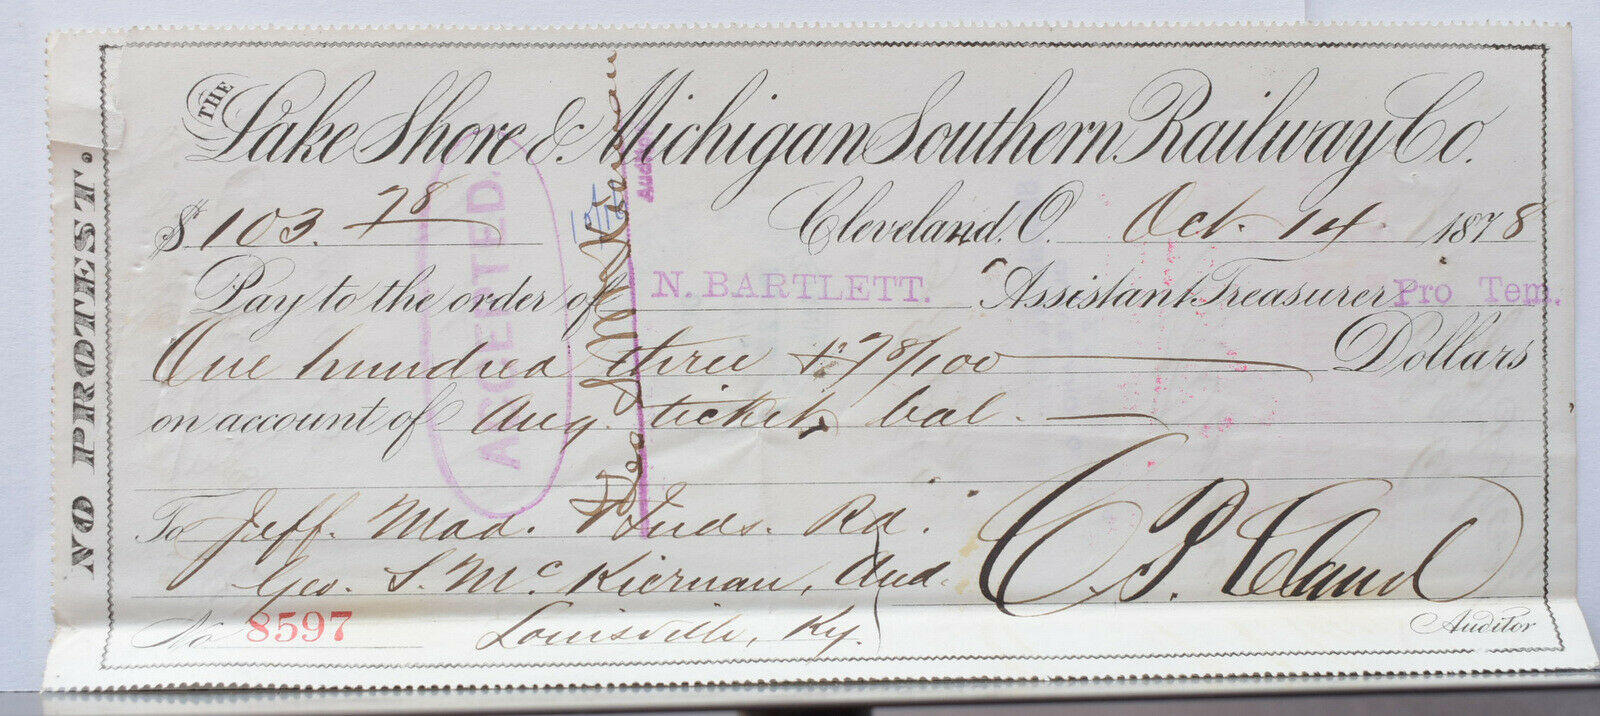 THE
Lake Shore & Michigan Southern Railway Co.
$ 103. 78 Cleveland, O. Oct. 14 1878
Pay to the order of N. BARTLETT. Assistant Treasurer Pro Tem.
One hundred three & 78/100 Dollars
on account of Aug. ticket bal.
To Jeff. Mad. & Inds. Rd.
Geo. S. McKiernan, Aud.
No 8597 Louisville, Ky.
Auditor
NO PROTEST.
ACCEPTED.
Geo S McKiernan
Auditor